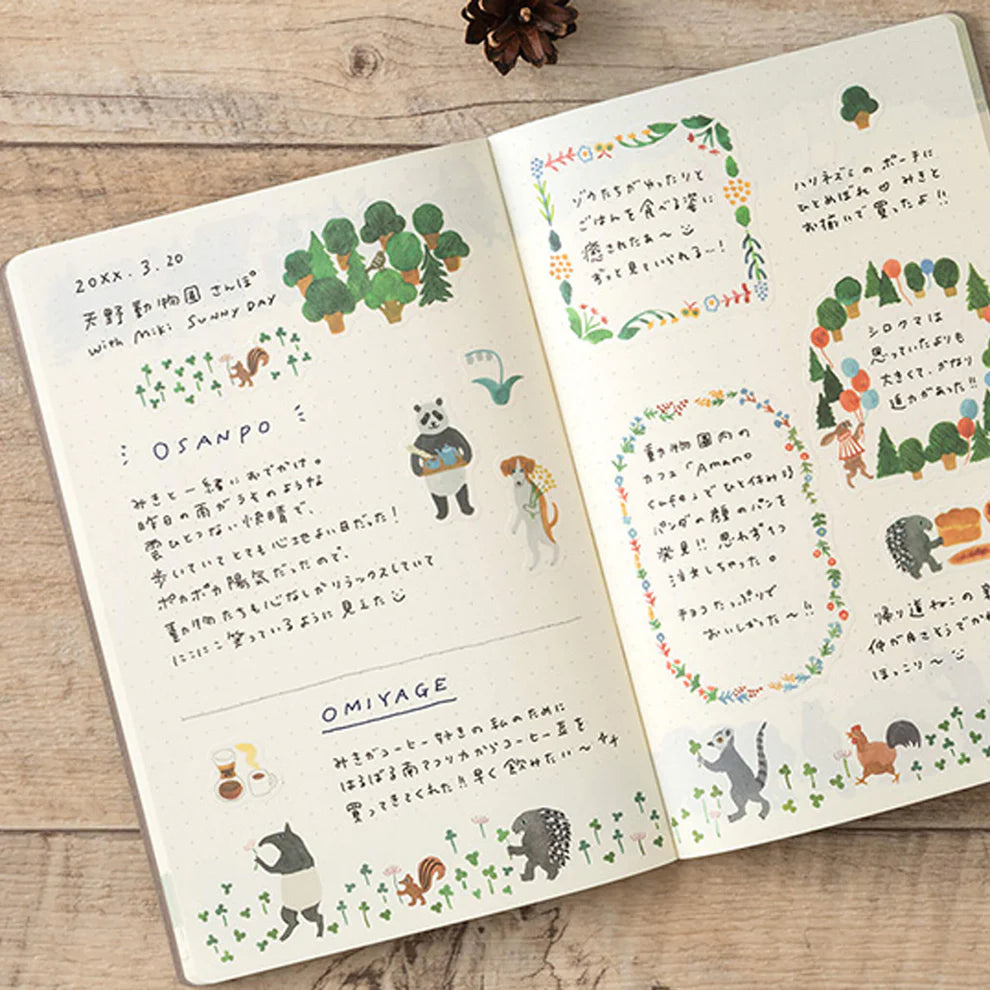 20XX. 3. 20
天野動物園さんぽ
with Miki SUNNY DAY
OSANPO
みきと一緒におでかけ。
昨日の雨がうそのような
雲ひとつない快晴で、
歩いていてとても心地よい日だった！
ポカポカ陽気だったので、
動物たちも心なしかリラックスしていて
にこにこ笑っているように見えた
OMIYAGE
みきがコーヒー好きの私のために
はるばる南アフリカからコーヒー豆を
買ってきてくれた!! 早く飲みたい〜
ゾウたちがゆったりと
ごはんを食べる姿に
癒されたぁ〜
ずっと見ていられる…！
ハリネズミのポーチに
ひとめぼれ♡ みきと
お揃いで買ったよ!!
シロクマは
思っていたよりも
大きくて、かなり
迫力があった!!
動物園内の
カフェ「Amano
cafe」でひと休み♪
パンダの顔のパンを
発見!! 思わず1つ
注文しちゃった。
チョコたっぷりで
おいしかった〜!!
帰り道ねこの
仲が良さそうでか
ほっこり〜